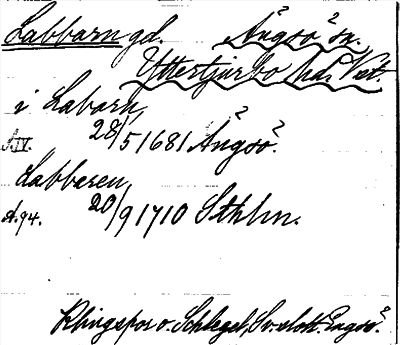 Labbarn gd. Ängsö sn.
Yttertjurbo hd, Vstl.
i Labarn,
S.IV. 28/5 1681 Ängsö.
Labbaren,
d. 94. 20/9 1710 Sthlm.
Klingspor o. Schlegel, Sv. slott. Engsö.